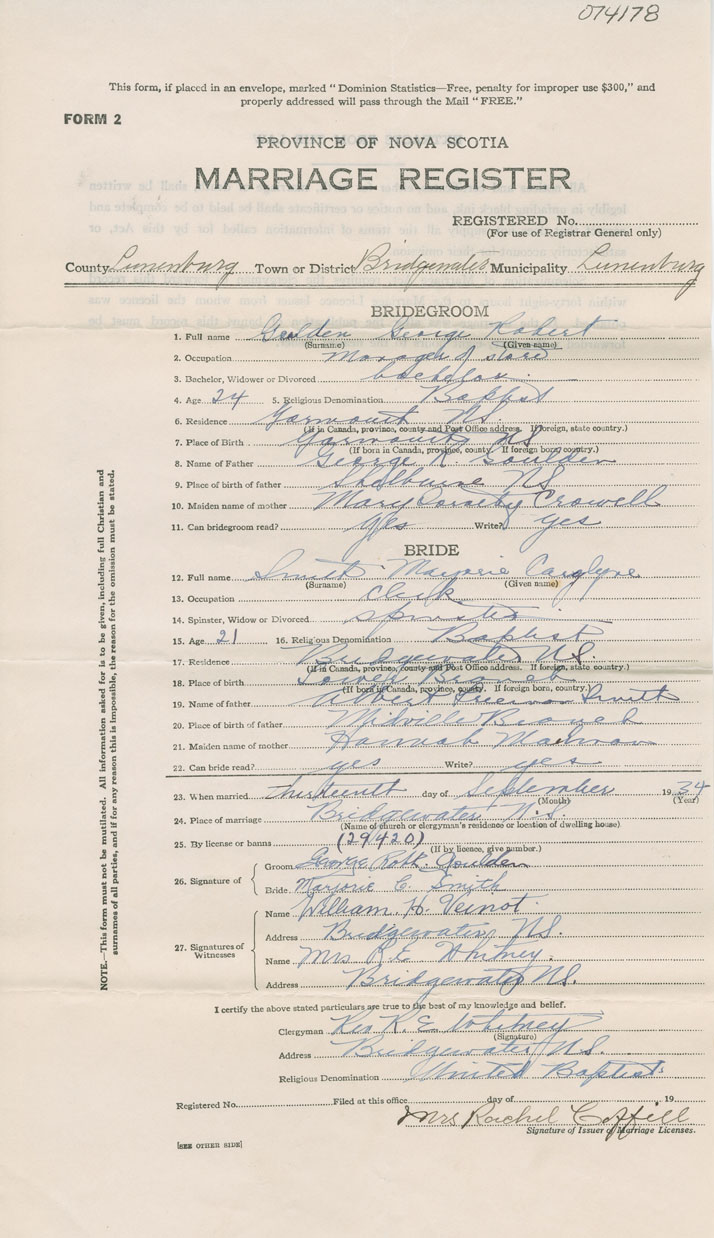 074178
This form, if placed in an envelope, marked "Dominion Statistics—Free, penalty for improper use $300," and
properly addressed will pass through the Mail "FREE."
FORM 2
PROVINCE OF NOVA SCOTIA
MARRIAGE REGISTER
REGISTERED No.
(For use of Registrar General only)
County Lunenburg Town or District Bridgewater Municipality Lunenburg
BRIDEGROOM
1. Full name Golden George Robert
(Surname) (Given name)
2. Occupation Manager of store
3. Bachelor, Widower or Divorced bachelor
4. Age 24 5. Religious Denomination Baptist
6. Residence Yarmouth N.S.
(If in Canada, province, county and Post Office address. If foreign, state country.)
7. Place of Birth Yarmouth NS
(If born in Canada, province, county. If foreign born country.)
8. Name of Father George R. Goulden
9. Place of birth of father Shelburne NS
10. Maiden name of mother Mary Dorothy Crowell
11. Can bridegroom read? yes Write? yes
BRIDE
12. Full name Smith Marjorie Carolyne
(Surname) (Given name)
13. Occupation Clerk
14. Spinster, Widow or Divorced Spinster
15. Age 21 16. Religious Denomination Baptist
17. Residence Bridgewater NS
(If in Canada, province, county and Post Office address. If foreign, state country.)
18. Place of birth Lower Branch
(If born in Canada, province, county. If foreign born, country.)
19. Name of father Albert Smith
20. Place of birth of father Midville Branch
21. Maiden name of mother Hannah
22. Can bride read? yes Write? yes
23. When married thirteenth day of September 1934
(Month) (Year)
24. Place of marriage Bridgewater N.S.
(Name of church or clergyman's residence or location of dwelling house)
25. By license or banns (29420)
(If by licence, give number.)
26. Signature of Groom George Robt. Goulden
Bride Marjorie C. Smith
27. Signatures of Witnesses
Name William H. Veinot
Address Bridgewater, NS.
Name Mrs R. E. Whitney
Address Bridgewater NS.
I certify the above stated particulars are true to the best of my knowledge and belief.
Clergyman Rev R. E. Whitney
(Signature)
Address Bridgewater N.S.
Religious Denomination United Baptist
Registered No. Filed at this office day of 19
Mrs Rachel Coffill
Signature of Issuer of Marriage Licenses.
[SEE OTHER SIDE]
NOTE.—This form must not be mutilated. All information asked for is to be given, including full Christian and
surnames of all parties, and if for any reason this is impossible, the reason for the omission must be stated.